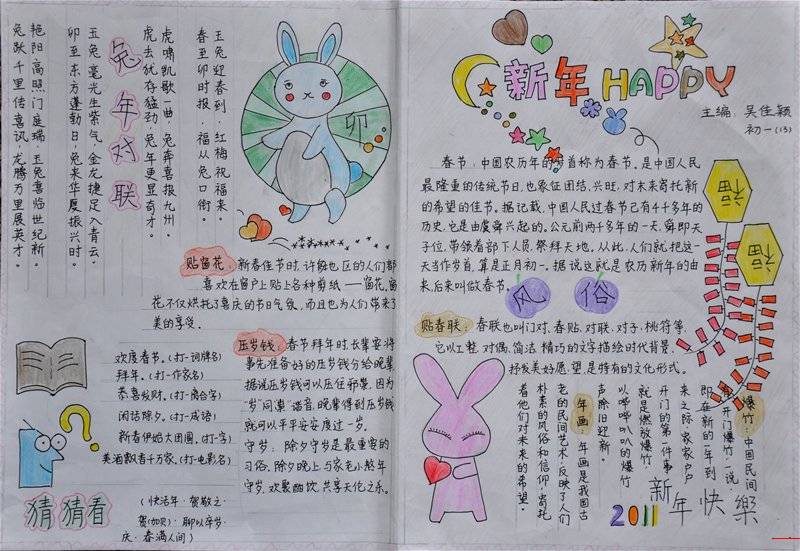 兔年对联
玉兔迎春到·红梅祝福来·
春至卯时报·福从兔口衔·
虎啸凯歌一曲·兔奔喜报九州·
虎去犹存猛劲·兔年更显奇才·
玉兔毫光生紫气·金龙捷足入青云·
卯至东方蓬勃日·兔来华夏振兴时·
艳阳高照门庭瑞·玉兔喜临世纪新·
兔跃千里传喜讯·龙腾万里展英才·
卯
贴窗花:新春佳节时,许多地区的人们都
喜欢在窗户上贴上各种剪纸——窗花,窗
花不仅烘托了喜庆的节日气氛,而且也为人们带来了
美的享受。
压岁钱:春节拜年时,长辈要将
事先准备好的压岁钱分给晚辈,
据说压岁钱可以压住邪祟,因为
“岁”同“祟”谐音,晚辈得到压岁钱
就可以平平安安度过一岁。
守岁:除夕守岁是最重要的
习俗,除夕晚上,与家老小熬年
守岁,欢聚酣饮,共享天伦之乐。
欢度春节。(打一词牌名)
拜年。(打一作家名)
恭喜发财。(打一离合字)
闲话除夕。(打一成语)
新春伊始大团圆。(打一字)
美酒飘香千万家。(打一电影名)
猜猜看
(快活年·贺敬之·
赟(加贝)·聊以卒岁·
庆·春满人间)
新年HAPPY
主编:吴佳颖
初一(13)
春节:中国农历年的岁首称为春节。是中国人民
最隆重的传统节日,也象征团结,兴旺,对未来寄托新
的希望的佳节。据记载,中国人民过春节已有4千多年的
历史,它是由虞舜兴起的。公元前两千多年的一天,舜即天
子位,带领着部下人员,祭拜天地。从此,人们就把这一
天当作岁首,算是正月初一。据说这就是农历新年的由
来,后来叫做春节。
福
福
风俗
贴春联:春联也叫门对、春贴、对联、对子、桃符等,
它以工整、对偶、简洁、精巧的文字描绘时代背景,
抒发美好愿望,是特有的文化形式。
爆竹:中国民间
有开门爆竹一说·
即在新的一年到
来之际·家家户户
开门的第一件事
就是燃放爆竹·
以哔哔叭叭的爆竹
声除旧迎新·
年画:年画是我国古
老的民间艺术·反映了人们
朴素的风俗和信仰·寄托
着他们对未来的希望·
2011
新年快樂